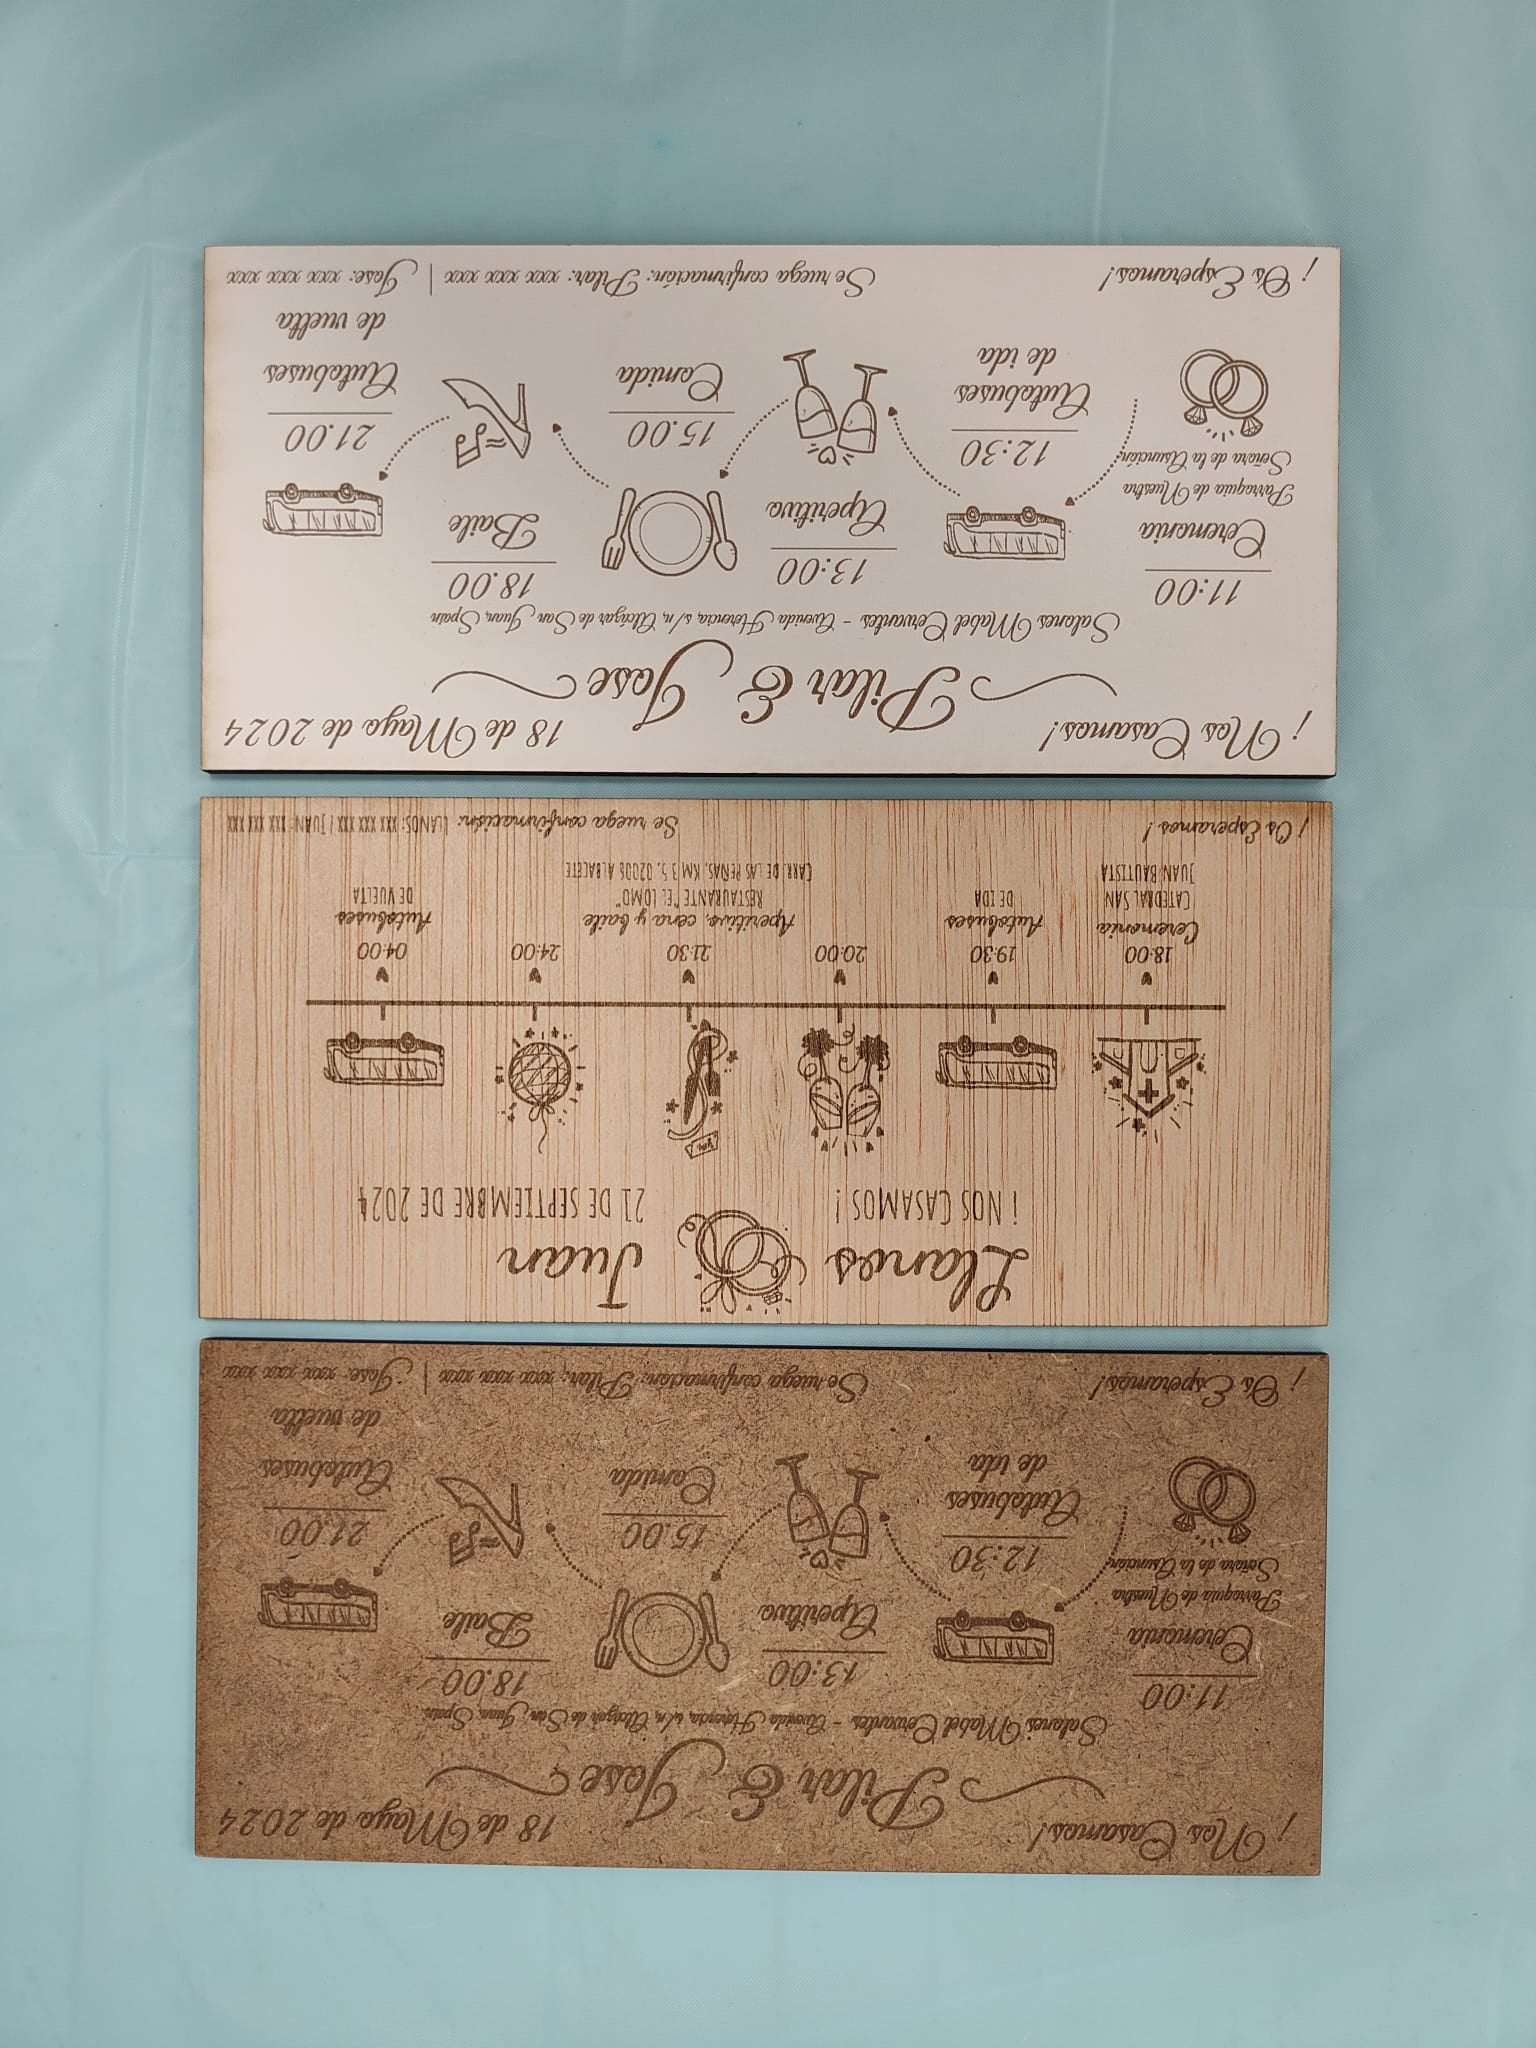 ¡Nos Casamos!
18 de Mayo de 2024
Pilar & Jose
Salones Mabel Cervantes - Avenida Herencia, s/n, Alcázar de San Juan, Spain
11:00
Ceremonia
Parroquia de Nuestra
Señora de la Asunción
12:30
Autobuses
de ida
13:00
Aperitivo
15.00
Comida
18.00
Baile
21.00
Autobuses
de vuelta
¡Os Esperamos!
Se ruega confirmación: Pilar: xxx xxx xxx | Jose: xxx xxx xxx
Llanos Juan
¡ NOS CASAMOS !
21 DE SEPTIEMBRE DE 2024
18:00
Ceremonia
CATEDRAL SAN
JUAN BAUTISTA
19:30
Autobuses
DE IDA
20:00
21:30
Aperitivo, cena y baile
RESTAURANTE "EL LOMO"
CARR. DE LAS PEÑAS, KM 3.5, 02006 ALBACETE
24:00
04:00
Autobuses
DE VUELTA
¡ Os Esperamos !
Se ruega confirmación: LLANOS: XXX XXX XXX / JUAN: XXX XXX XXX
¡Nos Casamos!
18 de Mayo de 2024
Pilar & Jose
Salones Mabel Cervantes - Avenida Herencia, s/n, Alcázar de San Juan, Spain
11:00
Ceremonia
Parroquia de Nuestra
Señora de la Asunción
12:30
Autobuses
de ida
13:00
Aperitivo
15.00
Comida
18.00
Baile
21.00
Autobuses
de vuelta
¡Os Esperamos!
Se ruega confirmación: Pilar: xxx xxx xxx | Jose: xxx xxx xxx